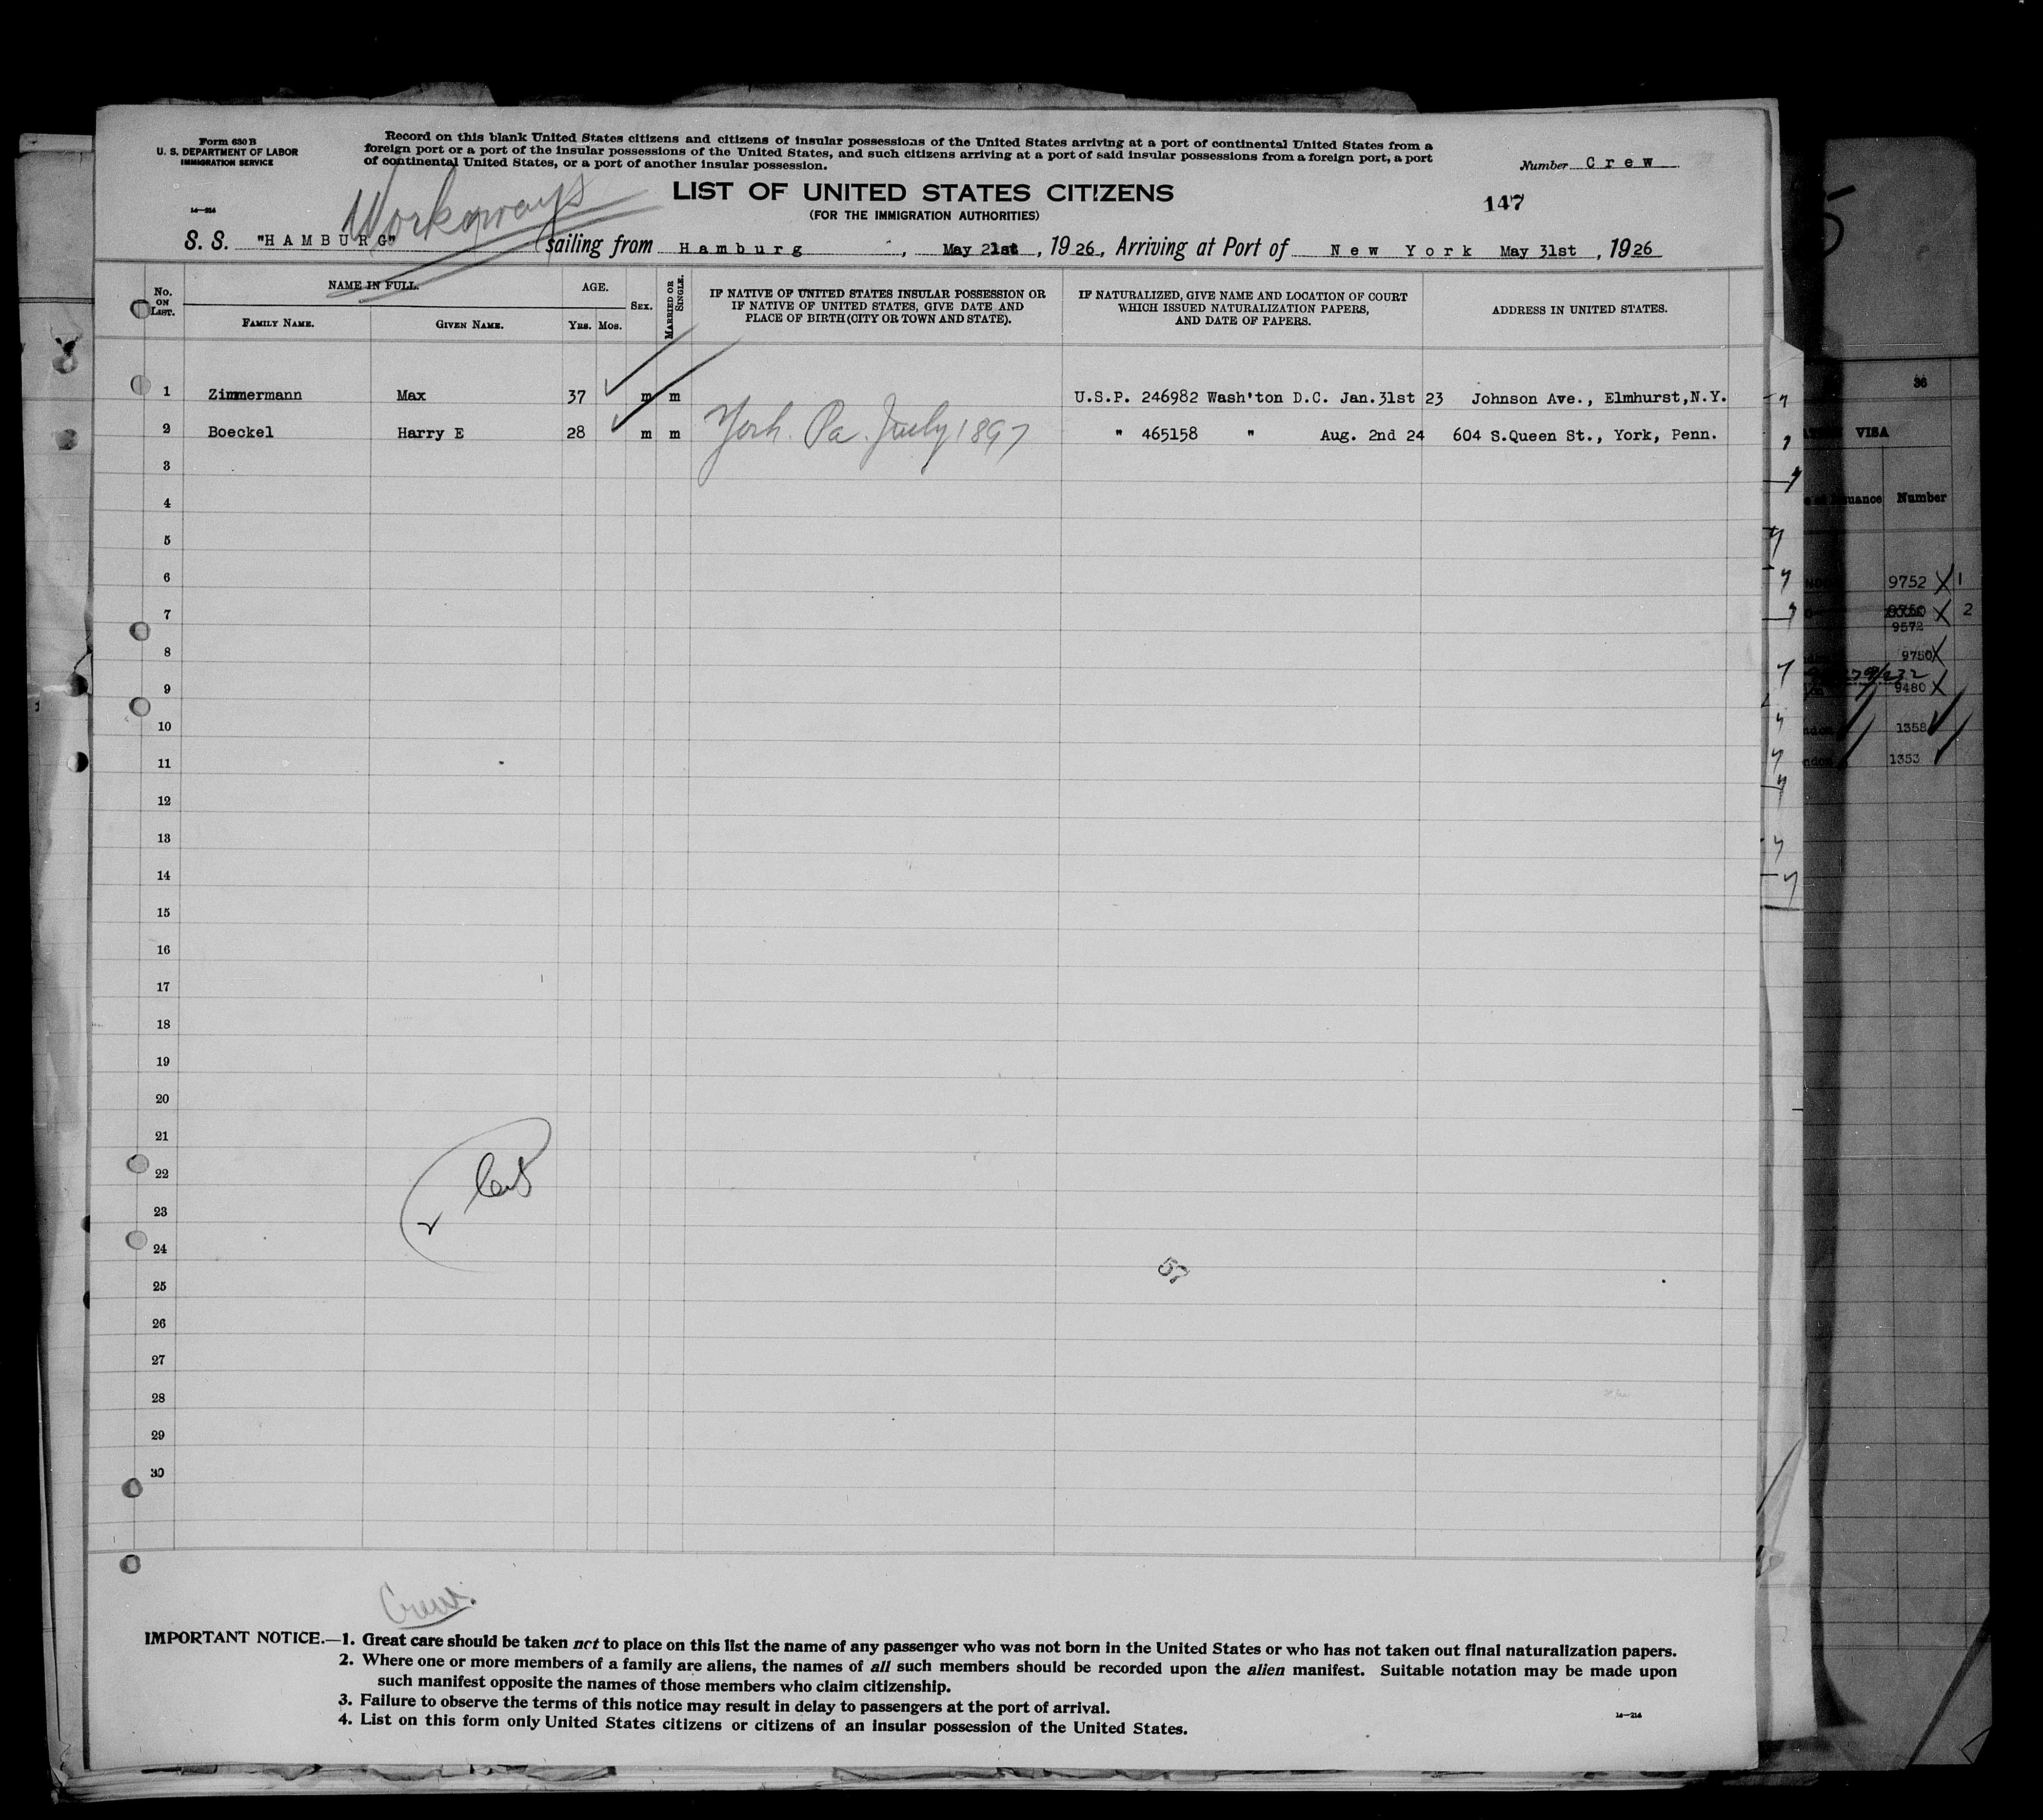 Form 630 B
U. S. DEPARTMENT OF LABOR
IMMIGRATION SERVICE
14—214
Record on this blank United States citizens and citizens of insular possessions of the United States arriving at a port of continental United States from a
foreign port or a port of the insular possessions of the United States, and such citizens arriving at a port of said insular possessions from a foreign port, a port
of continental United States, or a port of another insular possession.
Number Crew
Workaways
LIST OF UNITED STATES CITIZENS
147
(FOR THE IMMIGRATION AUTHORITIES)
S. S. "HAMBURG" sailing from Hamburg, May 21st, 1926, Arriving at Port of New York May 31st, 1926
No. ON LIST. NAME IN FULL. FAMILY NAME. GIVEN NAME. AGE. YRS. MOS. SEX. MARRIED OR SINGLE.
IF NATIVE OF UNITED STATES INSULAR POSSESSION OR
IF NATIVE OF UNITED STATES, GIVE DATE AND
PLACE OF BIRTH (CITY OR TOWN AND STATE).
IF NATURALIZED, GIVE NAME AND LOCATION OF COURT
WHICH ISSUED NATURALIZATION PAPERS,
AND DATE OF PAPERS.
ADDRESS IN UNITED STATES.
1 Zimmermann Max 37 m m U.S.P. 246982 Wash'ton D.C. Jan.31st 23 Johnson Ave., Elmhurst,N.Y.
2 Boeckel Harry E 28 m m York. Pa. July 1897 " 465158 " Aug. 2nd 24 604 S.Queen St., York, Penn.
3
4
5
6
7
8
9
10
11
12
13
14
15
16
17
18
19
20
21
22
23
24
25
26
27
28
29
30
57
Crew.
IMPORTANT NOTICE.—1. Great care should be taken not to place on this list the name of any passenger who was not born in the United States or who has not taken out final naturalization papers.
2. Where one or more members of a family are aliens, the names of all such members should be recorded upon the alien manifest. Suitable notation may be made upon
such manifest opposite the names of those members who claim citizenship.
3. Failure to observe the terms of this notice may result in delay to passengers at the port of arrival.
4. List on this form only United States citizens or citizens of an insular possession of the United States.
14—214
36
VISA
Number
9752 X 1
X 2
9572
9750 X
9480 X
1358
1353